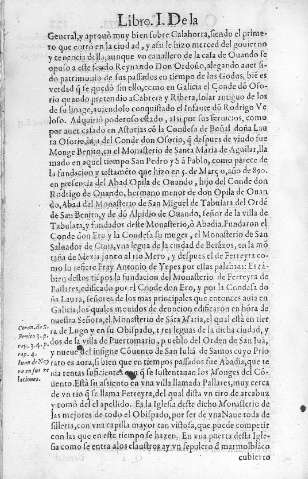 Libro. I. De la
General, y aprouò muy bien sobre Calahorra, siendo el prime-
ro que entrò en la ciudad, y assi se hizo merced del gouierno
y tenencia della, aunque vn cauallero de la casa de Ouando se
opuso a este feudo Reynando Don Ordoño, alegando auer si-
do patrimonio de sus passados en tiempo de los Godos, biē es
verdad q̃ se quedò sin ello, como en Galicia el Conde dō Oso-
rio quando pretendio a Cabrera y Ribera, solar antiguo de los
de su linage, auiendolo conquistado el Infante dō Rodrigo Ve-
loso. Adquirio poderoso estado, assi por sus seruicios, como
por auer casado en Astorias cō la Condesa de doña Lau-
ra Osorio, hija del Conde don Osorio, q̃ despues de viudo fue
Monge Benito, en el Monasterio de Santa Maria de Aguilar, lla
mado en aquel tiempo San Pedro y S. Pablo, como parece de
la fundacion y testamēto que hizo en 5. de Março, año de 890.
en presencia del Abad Opila de Ouando, hijo del Conde don
Rodrigo de Ouando, hermano menor de don Opila de Ouan-
do, Abad del Monasterio de San Miguel de Tabulata del Ordē
de San Benito, y de dō Alpidio de Ouando, señor de la villa de
Tabulata, y fundador deste Monasterio, ò Abadia. Fundaron el
Conde don Ero y la Condesa su muger, el Monasterio de San
Saluador de Cinis, vna legua de la ciudad de Betāços, en la mō
taña de Mexia junto al rio Mero, y despues el de Ferreyra co-
mo lo señere Fray Antonio de Yepes por ellas palabras: Es tā-
bien destos tiēpos la fundacion del Monasterio de Ferreyra de
Pallares, edificado por el Conde don Ero, y por la Condesa do
ña Laura, señores de los mas principales que entonces auia en
Galicia, los quales mouidos de deuocion edificaron en hōra de
nuestra Señora, el Monasterio de Sāta Maria, el qual esta en tier
ra de Lugo y en su Obispado, tres leguas de la dicha ciudad, y
dos de la villa de Puertomarin, pueblo del Orden de San Iuā,
y nueue del insigne Cōuento de San Iuliā de Samos cuyo Prio
rato es aora, si bien que en tiempos passados fue Abadia, que te
nia rentas suficientes con q̃ se sustentauan los Monges del Cō-
uento. Està su assiento en vna villa llamada Pallares, muy cerca
de vn rio q̃ se llama Ferreyra, del qual dista vn tiro de arcabuz
y tomò del el apellido. Es la Iglesia deste dicho Monasterio de
las mejores de todo el Obispado, por ser de vna Naue toda de
silleria, con vna capilla mayor tan vistosa, que puede competir
con las que en este tiempo se hazen. En vna puerta desta Igle-
sia como se entra a los claustros ay vn sepulcro d̃ marmol blāco
cubierto